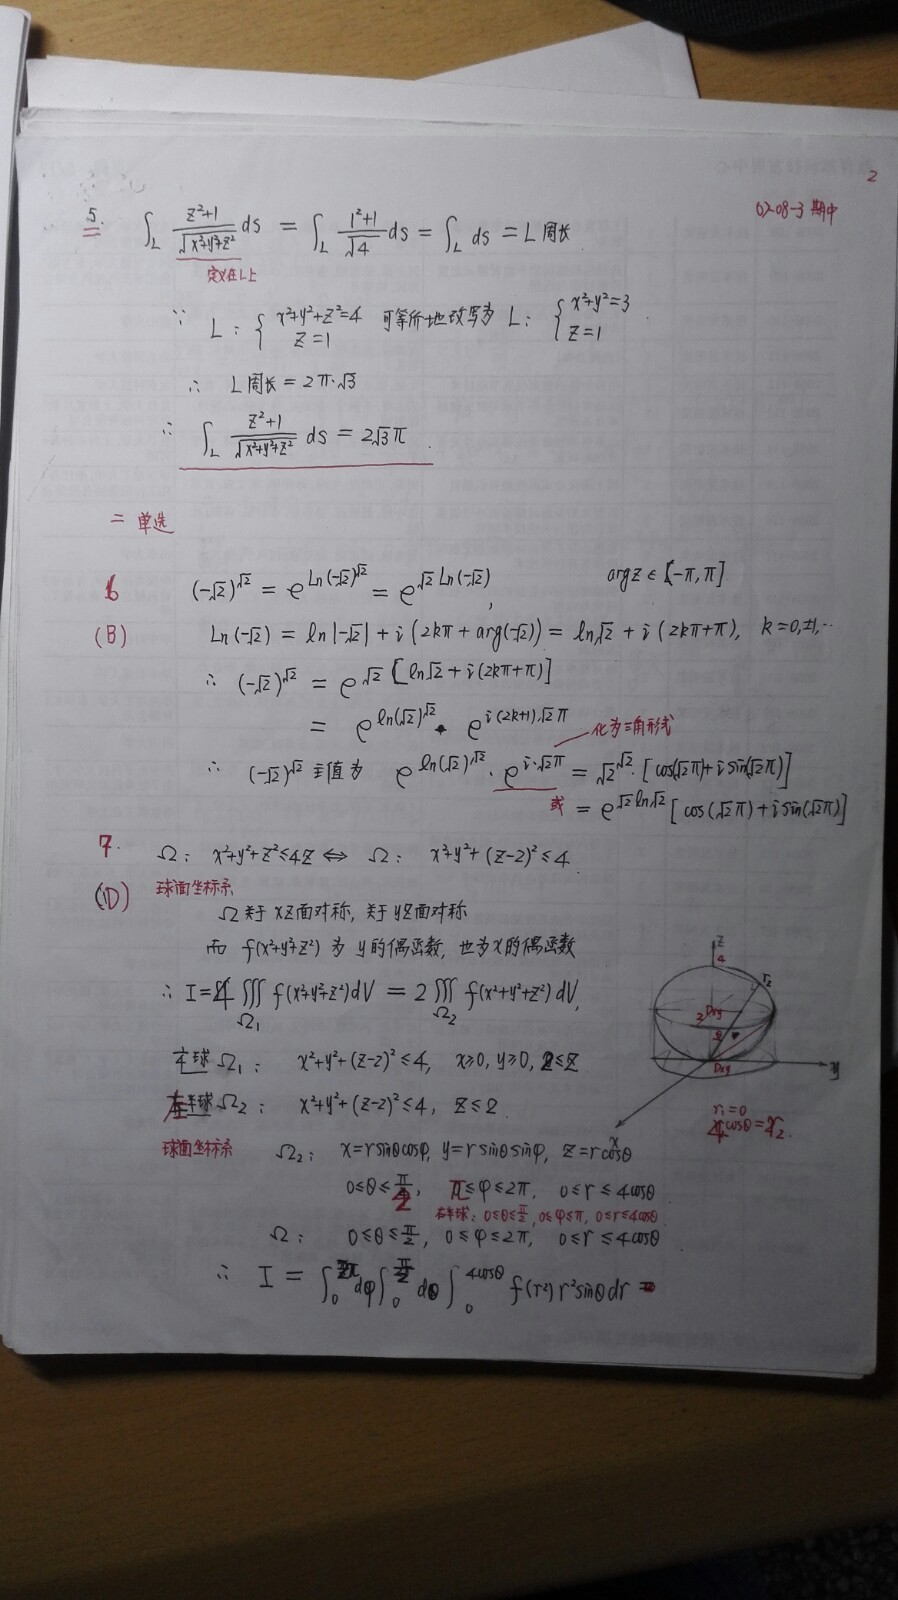 2
07-08-3 期中
5. ∫_L (z²+1)/√(x²+y²+z²) ds = ∫_L (1²+1)/√4 ds = ∫_L ds = L周长.
定义在L上
∵ L: { x²+y²+z²=4, z=1 可等价地改写为 L: { x²+y²=3, z=1.
∴ L周长=2π·√3
∴ ∫_L (z²+1)/√(x²+y²+z²) ds = 2√3π.
二 单选
6 (-√2)^√2 = e^{Ln(-√2)^√2} = e^{√2 Ln(-√2)}, arg z ∈ [-π, π]
(B) Ln(-√2) = ln|-√2| + i(2kπ + arg(-√2)) = ln√2 + i(2kπ+π), k=0,±1,…
∴ (-√2)^√2 = e^{√2[ln√2 + i(2kπ+π)]}
= e^{ln(√2)^√2} · e^{i(2k+1)·√2π}
化为三角形式
∴ (-√2)^√2 主值为 e^{ln(√2)^√2} · e^{i·√2π} = √2^√2·[cos(√2π)+i sin(√2π)]
或 = e^{√2 ln√2}[cos(√2π)+i sin(√2π)]
7. Ω: x²+y²+z²≤4z ⇔ Ω: x²+y²+(z-2)²≤4.
(D) 球面坐标系
Ω关于xz面对称, 关于yz面对称
而 f(x²+y²+z²) 为 y的偶函数, 也为x的偶函数
∴ I=4∭_{Ω₁} f(x²+y²+z²)dV = 2∭_{Ω₂} f(x²+y²+z²)dV,
球 Ω₁: x²+y²+(z-2)²≤4, x≥0, y≥0, 2≤z
半球 Ω₂: x²+y²+(z-2)²≤4, z≤2.
z
4
r₂
2
Dxy
Dxy
y
x
r₁=0
4cosθ=r₂.
球面坐标系 Ω₂: x=r sinθcosφ, y=r sinθ sinφ, z=r cosθ
0≤θ≤π/2, π≤φ≤2π, 0≤r≤4cosθ
右半球: 0≤θ≤π/2, 0≤φ≤π, 0≤r≤4cosθ.
Ω: 0≤θ≤π/2, 0≤φ≤2π, 0≤r≤4cosθ
∴ I = ∫₀ dφ ∫₀^{π/2} dθ ∫₀^{4cosθ} f(r²) r² sinθ dr